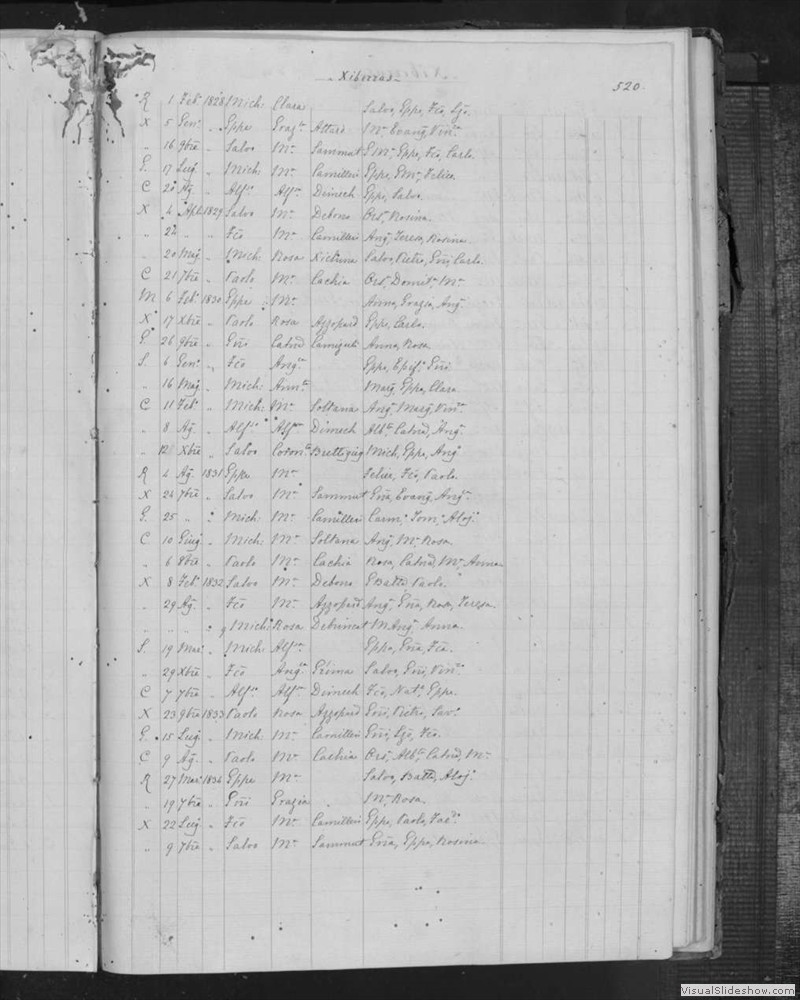 Xiberras
520.
R 1 Feb. 1828 Mich: Clara Salvo, Eppe, Fco, Lzo.
X 5 Genn. " Eppe Graz.a Attard M.a Evang, Vin.a
" 16 9bre " Salvo M.a Sammut G M.a, Eppe, Fco, Carlo.
G. 17 Lug. " Mich: M.a Camilleri Eppe, Felice.
C 20 Ag. " Alf.o Alf.a Dimech Eppe, Salvo.
X 4 Apl. 1829 Salvo M.a Debono Ors, Rosina.
" 22 " " Fco M.a Camilleri Ang, Teresa, Rosina
" 20 Mag. " Mich: Rosa Xicluna Salvo, Pietro, Gni, Carlo.
C 21 7bre " Paolo M.a Cachia Ors, Domit.a M.a
M 6 Feb. 1830 Eppe " M.a Anna, Grazia, Ang.
X 17 Xbre " Paolo Rosa Azzopard Eppe, Carlo.
G. 26 9bre " Gni Catrid Anna, Rosa.
S. 6 Genn. " Fco Ang.a Eppe, Epif.a Gni.
" 16 Mag. " Mich: Ann.ta Marg, Eppe, Clara
C 11 Feb. " Mich: M.a Soltana Ang, Marg, Vin.a
" 8 Ag. " Alf.o Alf.a Dimech Alb.a Catrid, Ang.
" 12 Xbre " Salvo Coron.ta Buttigieg Mich, Eppe, Ang
R 4 Ag. 1831 Eppe M.a Felice, Fco, Paolo.
X 24 7bre " Salvo M.a Sammut Gna, Evang, Ang.a
G. 25 " " Mich: M.a Camilleri Carm.a Tom.a Aloj.a
C 10 Giug. " Mich: M.a Soltana Ang, M.a Rosa
" 6 8bre " Paolo M.a Cachia Rosa, Catrid, M.a Anna
X 8 Feb. 1832 Salvo M.a Debono GBatta Paolo.
" 29 Ag. " Fco M.a Azzopard Ang, Gna, Rosa, Teresa.
" " " " Mich: Rosa M Ang, Anna.
S. 19 Mar. " Mich: Alf.a Eppa, Gna, Fca.
" 29 Xbre " Fco Ang.a Salvo, Gni, Vin.o
C 7 7bre " Alf.o Alf.a Dimech Fco, Nat.e Eppe.
X 23 9bre 1833 Paolo Rosa Azzopard Gni, Pietro, Sav.o
G. 15 Lug. " Mich: M.a Camilleri Gni, Lzo, Fco.
C 9 Ag. " Paolo M.a Cachia Ors, Alb.a Catrid, M.a
R 27 Mar. 1834 Eppe M.a Salvo, Batta, Aloj.
" 19 7bre " Gni Grazia " M.a Rosa.
X 22 Lug. " Fco M.a Camilleri Eppe, Paolo,
" 9 7bre " Salvo M.a Sammut Gna, Eppa, Rosina.
VisualSlideshow.com